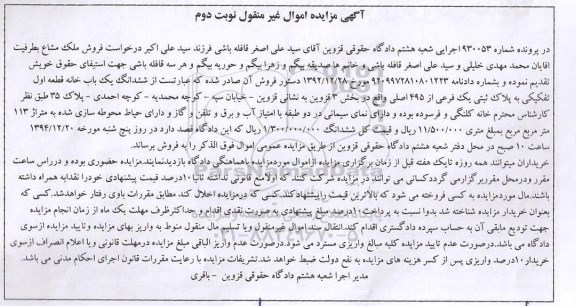 آگهی مزایده اموال غیر منقول نوبت دوم
در پرونده شماره ۹۳۰۰۵۳ اجرایی شعبه هشتم دادگاه حقوقی قزوین آقای سید علی اصغر قافله باشی فرزند سید علی اکبر درخواست فروش ملک مشاع بطرفیت
اقایان محمد مهدی خلیلی و سید علی اصغر قافله باشی و خانم ها صدیقه بیگم و زهرا بیگم و حوریه بیگم و هر سه قافله باشی جهت استیفای حقوق خویش
تقدیم نموده و بشماره دادنامه ۹۲۰۹۹۷۲۸۱۰۸۰۱۲۲۳ مورخ ۱۳۹۲/۱۲/۲۸ دستور فروش آن صادر شده که عبارتست از ششدانگ یک باب خانه قطعه اول
تفکیکی به پلاک ثبتی یک فرعی از ۴۹۵ اصلی واقع در بخش ۳ قزوین به نشانی قزوین - خیابان سپه - کوچه محمدیه - کوچه احمدی - پلاک ۳۵ طبق نظر
کارشناس محترم خانه کلنگی و فرسوده بوده و دارای نمای سیمانی در دو طبقه با امتیاز آب و برق و تلفن و گاز و دارای حیاط محوطه سازی شده به متراژ ۱۱۳
متر مربع مربع بمبلغ متری ۱۱/۵۰۰/۰۰۰ ریال و قیمت کل ششدانگ ۱/۳۰۰/۰۰۰/۰۰۰ ریال که این دادگاه قصد دارد در روز پنج شنبه مورخه ۱۳۹۴/۱۲/۲۰
ساعت ۱۰ صبح در محل دفتر شعبه هشتم دادگاه حقوقی قزوین از طریق مزایده عمومی اموال فوق الذکر را به فروش برساند.
خریداران میتوانند همه روزه تایک هفته قبل از زمان برگزاری مزایده ازاموال موردمزایده باهماهنگی دادگاه بازدیدنمایند.مزایده حضوری بوده و درراس ساعت
مقرر ودرمحل مقرربرگزارمی گرددکسانی می توانند در مزایده شرکت کنند که اولامنع قانونی نداشته ثانیا۱۰درصد قیمت پیشنهادی خودرا نقدابه همراه داشته
باشند.مال موردمزایده به کسی فروخته می شود که بالاترین قیمت راپیشنهادکند.کسی که درمزایده اخلال کند مطابق مقررات باوی رفتار خواهدشد.کسی که
بعنوان خریدار مزایده شناخته شد بدوا نسبت به پرداخت ۱۰درصد مبلغ پیشنهادی به صورت نقدی اقدام و حداکثرظرف مهلت یک ماه از زمان انجام مزایده
جهت تودیع مابقی آن به حساب سپرده دادگستری اقدام کند.انتقال سند اموال غیرمنقول ویا تسلیم مال منقول منوط به واریز بهای مزایده وتایید مزایده ازسوی
دادگاه می باشد.درصورت عدم تایید مزایده کلیه مبالغ واریزی مسترد می شود.درصورت عدم واریز الباقی مبلغ مزایده درمهلت قانونی ویا اعلام انصراف ازسوی
خریدار۱۰درصد واریزی پس از کسر هزینه های مزایده به نفع دولت ضبط خواهد شد.تشریفات مزایده با رعایت مقررات قانون اجرای احکام مدنی می باشد.
مدیر اجرا شعبه هشتم دادگاه حقوقی قزوین - باقری